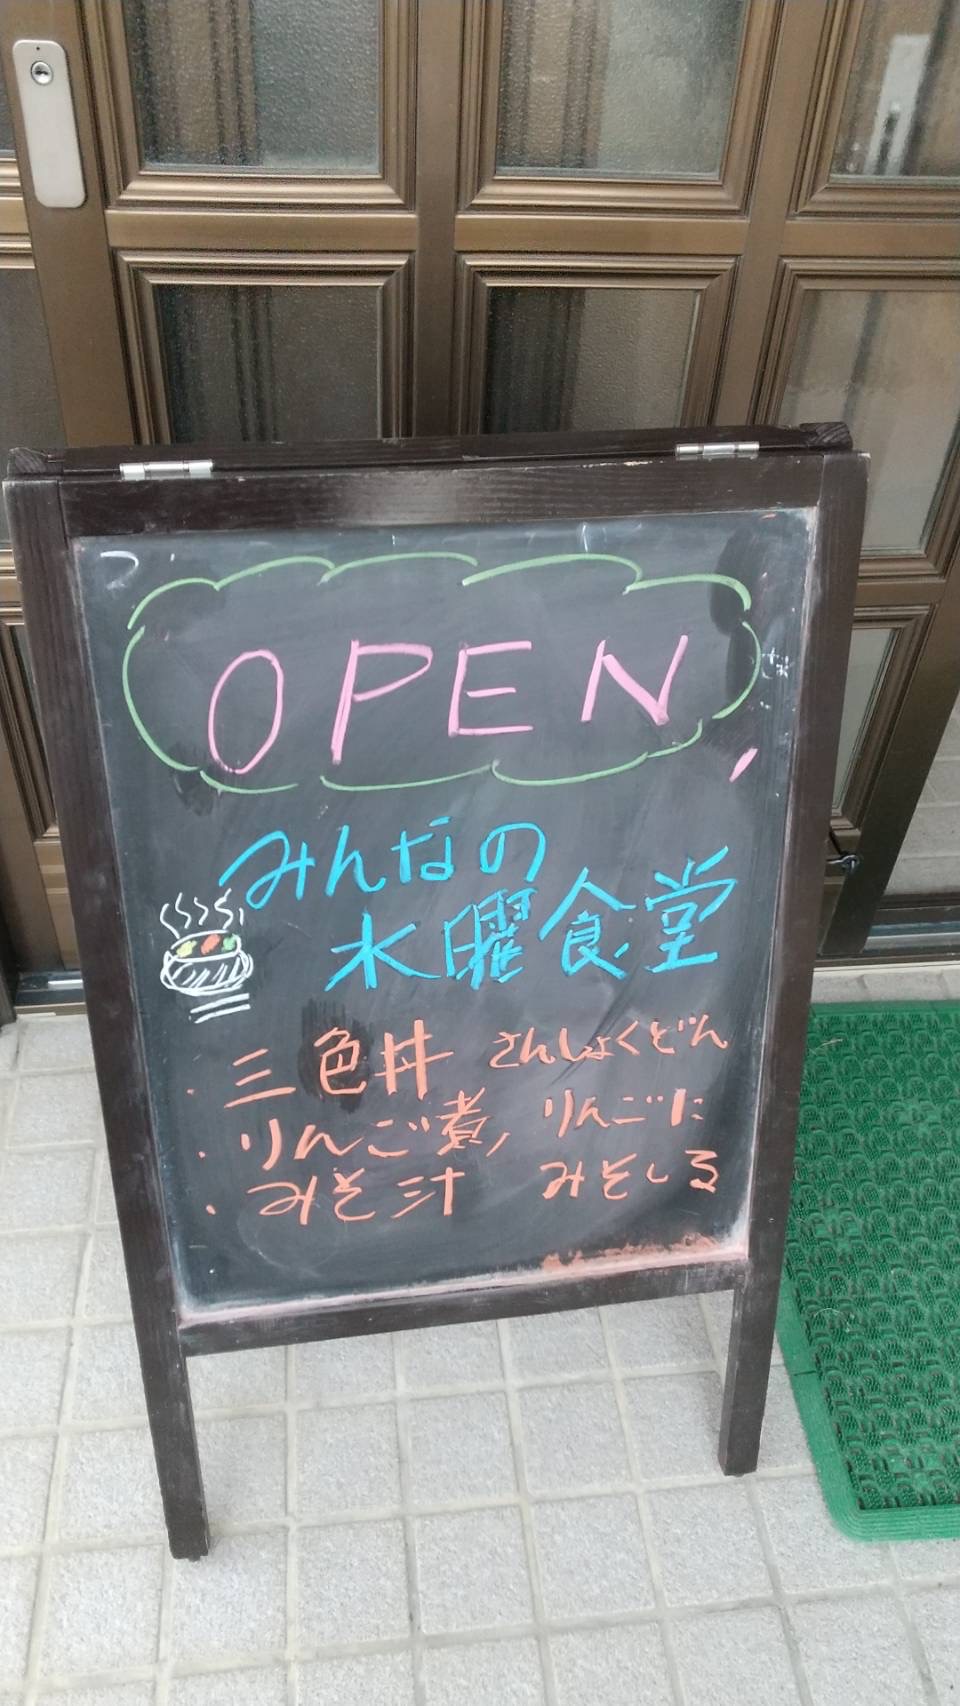 OPEN
みんなの
水曜食堂
・三色丼 さんしょくどん
・りんご煮、りんごに
・みそ汁 みそしる